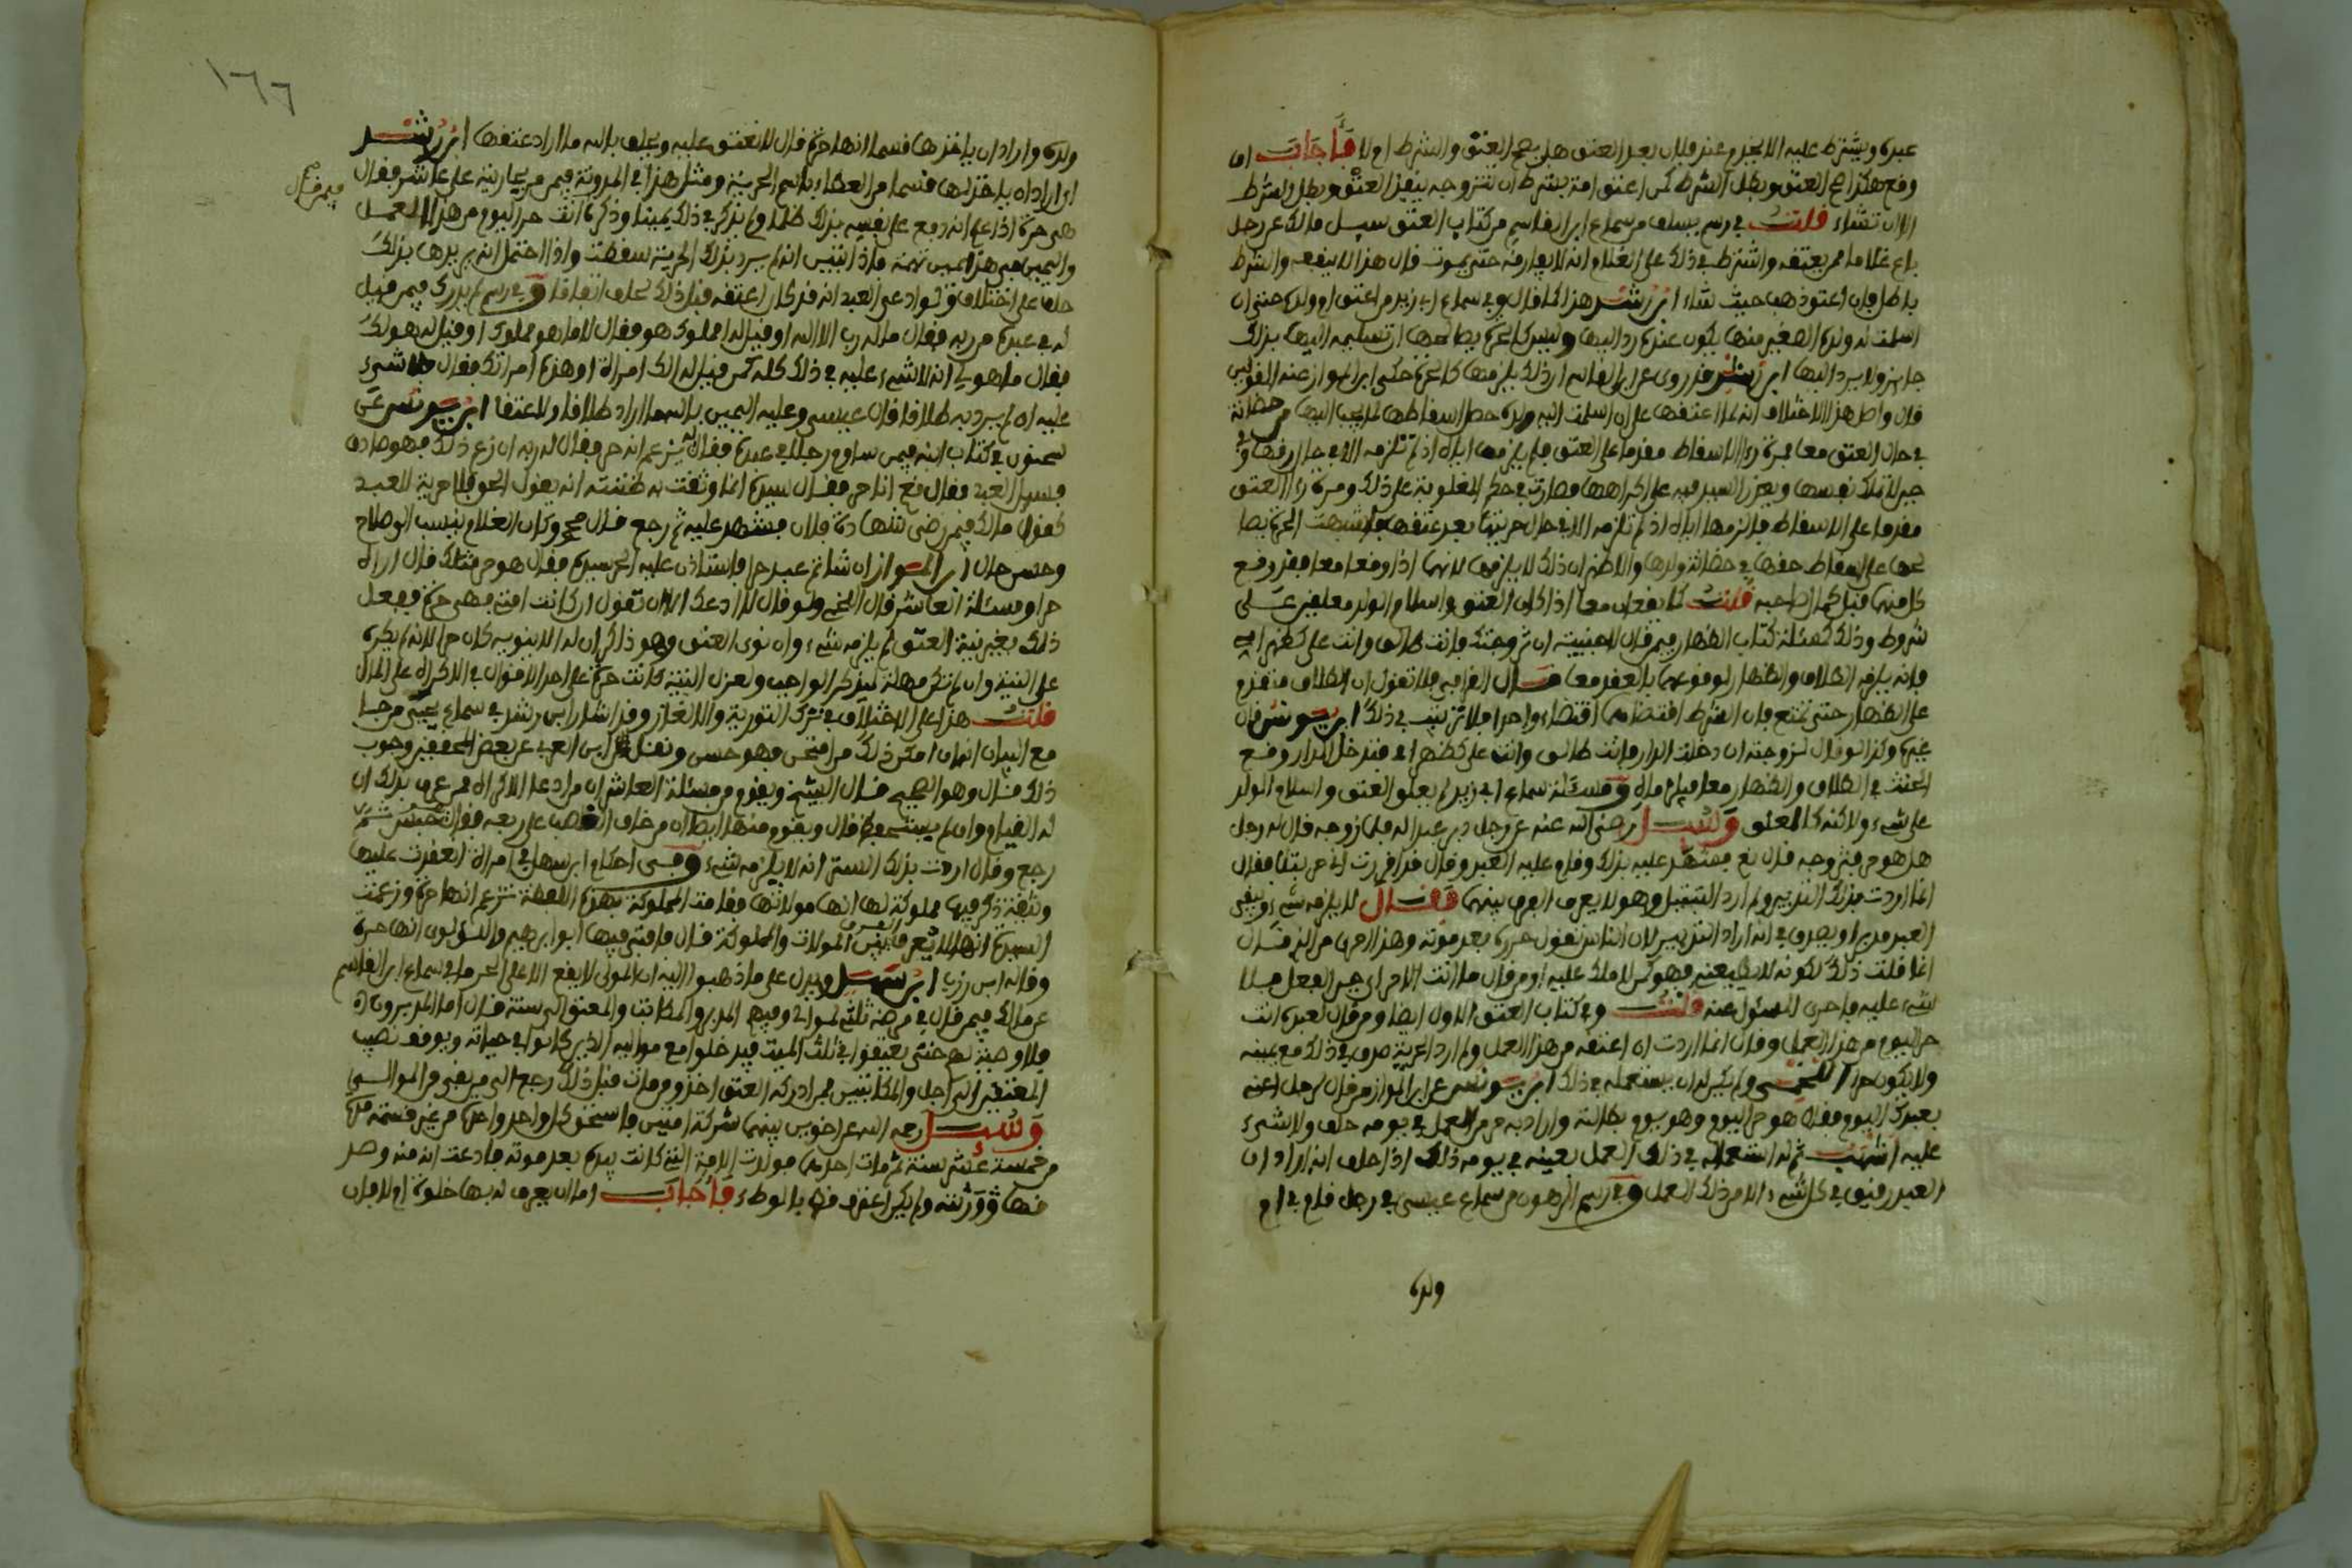 عبده ويشترط عليه الا يخدم عند فلان بعد العتق هل يصح العتق والشرط ام لا فأجاب اما
وقع هكذا صح العتق وبطل الشرط كمن اعتق امة بشرط ان تتزوجه ينفذ العتق وبطل الشرط
الا ان تشاء قلت في رسم يسلف من سماع ابن القاسم من كتاب العتق سيل مالك عن رجل
باع غلاما ممن يعتقه واشترط في ذلك على الغلام انه لا يفارقه حتى يموت قال هذا لا ينفعه والشرط
باطل فان اعتق ذهب حيث شاء ابن رشد هذا كما قال وفي سماع ابي زيد من اعتق ام ولده على ان
اسلمت له ولده الصغير منها يكون عنده رد اليها وليس كالحرة يصالحها على تسليمه اليها بذلك
جايز ولا يرد اليها ابن رشد قد روى عن ابن القاسم ان ذلك يلزمها كالحرة حكى ابن المواز عنه القولين
قال واصل هذا الاختلاف انه لما اعتقها على ان اسلمت اليه ولده حصل اسقاطها لما يجب اليها من حضانة
في حال العتق معا فمرة راى الاسقاط مقدما على العتق فلم يلزمها اياه اذ لم تلزمه الا في حال رقها وفي
حين لا تملك نفسها ويعذر السيد فيه على اكراهها فصارت في حكم المغلوبة على ذلك ومرة راى العتق
مقدما على الاسقاط فالزمها اياه اذ لم تلزمه الا في حال حريتها بعد عتقها فاشبهت الحرة يصا
لحها على اسقاط حقها في حضانة ولدها والاظهر ان ذلك لا يلزمها لانهما اذا وقعا معا فقد وقع
كل منهما قبل كمال صاحبه قلت كما يقعان معا اذا كان العتق واسلام الولد معلقين على
شروط وذلك كمسئلة كتاب الظهار فيمن قال لاجنبية ان تزوجتك فانت طالق وانت علي كظهر امي
فانه يلزمه الطلاق والظهار لوقوعهما بالعقد معا قال القرافي فلا تقول ان الطلاق متقدم
على الظهار حتى تمنع فان الشرط اقتضاهما اقتضاء واحدا فلا ترتيب في ذلك ابن يونس قال
غيره وكذا لو قال لزوجته ان دخلت الدار فانت طالق وانت علي كظهر امي فتدخل الدار وقع
الحنث في الطلاق والظهار معا فيلزماه ومسئلة سماع ابي زيد لم يعلق العتق واسلام الولد
على شيء ولاكنه كالمعلق وسيل رضي الله عنه عن رجل دبر عبدا له فلما زوجه قال له رجل
هل هو حر فتزوجه قال نعم فشهد عليه بذلك وقام عليه العبد وقال قد اقررت اني حر بتلا فقال
انما اردت بذلك التدبير ولم ارد التبتيل وهو لا يعرف الفرق بينهما فقال لا يلزمه شيء ويبقى
العبد مدبرا ويصدق في انه اراد التدبير لان الناس تقول حر به بعد موته وهذا احرى من الذي قال
انما قلت ذلك لكونه لا يعينه فهو كمن لا ملك عليه او من قال ما انت الا حر اي حسن الفعل فلا
شيء عليه فاحرى المسئول عنه قلت وفي كتاب العتق الاول ايضا ومن قال لعبده انت
حر اليوم من هذا العمل وقال انما اردت ان اعتقه من هذا العمل ولم ارد الحرية صدق في ذلك مع يمينه
ولا يكون حرا اللخمي ولم يكن له ان يستعمله في ذلك ابن يونس عن ابن المواز من قال لرجل اعنه
بعبدك اليوم فقال هو حر اليوم وهو يوم بطالته واراد به حر من العمل في يومه حلف ولا شيء
عليه اشهب ثم له استعماله في ذلك العمل بعينه في يومه ذلك اذا حلف انه اراد ان
العبد رقيق في كل شيء الا من ذلك العمل وفي رسم الرهون من سماع عيسى في رجل قام في ام
ولده
١٦٦
ولده واراد ان ياخذها قسما انها حرة قال لا تعتق عليه ويحلف بالله ما اراد عتقها ابن رشد
اي اراد ان ياخذ لها قسما من العطاء باسم الحرية ومثل هذا في المدونة فيمن مر بجاريته على عاشر فقال
فيمن قال صح
هي حرة اذا علم انه دفع على نفسه بذلك ظلما ولم يذكر في ذلك يمينا وذكرها انت حر اليوم من هذا العمل
واليمين في هذا يمين تهمة فاذا تبين انه لم يرد بذلك الحرية سقطت واذا احتمل انه يريدها بذلك
حلف على اختلاف ولو ادعى العبد انه قد كان اعتقه قبل ذلك يحلف اتفاقا وفي رسم لم يدرك فيمن قيل
له في عبده من ربه فقال ما له رب الا الله او قيل له املوك هو فقال لا ما هو مملوك او قيل له هو لك
فقال ما هو لي انه لا شيء عليه في ذلك كله كمن قيل له الك امراة او هذه امراتك فقال لا شيء
عليه ان لم يرد به طلاقا قال عيسى وعليه اليمين بالله ما اراد طلاقا ولا عتقا ابن يونس عن
سحنون في كتاب ابنه فيمن ساوم رجلا في عبده فقال له يزعم انه حر فقال له ربه ان زعم ذلك فهو صادق
فسيل العبد فقال نعم انا حر فقال سيده انما وثقت به ظننته انه يقول الحق فلا حرية للعبد
كقول مالك فيمن رضي شهادة فلان فشهد عليه ثم رجع قال محمد وكان الغلام ينسب الى صلاح
وحسن حال ابن المواز ان شاتم عبد حرا فاستاذن عليه الحر سيده فقال هو حر مثلك قال اراه
حرا ومسئلة العاشر قال اللخمي ولو قال لا ادعك الا ان تقول ان كانت امتي فهي حرة ففعل
ذلك بغير نية العتق لم يلزمه شيء وان نوى العتق وهو ذاكر ان له الا ينويه كان حرا لانه لم يكره
على النية وان لم تكن مهلة ليذكر الواجب ولعزل النية كانت حرة على احد الاقوال في الاكراه على المال
قلت هذا على الاختلاف في ترك التورية والالغاز وقد اشار ابن رشد في سماع يحيى من جا
مع البيان ان امكن ذلك من افتحى فهو حسن ونقل ابن العربي عن بعض المحققين وجوب
ذلك قال وهو الصحيح قال الشيخ ويقوم من مسئلة العاشر ان من ادعى الاكراه ممن عرف بذلك ان
له القيام وان لم يستحفظ قال ويقوم منها ايضا ان من خاف الغصب على ربعه فقال حبس ثم
رجع وقال اردت بذلك الستر انه لا يلزمه شيء وفي احكام ابن سهل في امراة انعقدت عليها
وثيقة ذكر فيها مملوكة لها انها مولاتها فقامت المملوكة بهذه اللفظة تزعم انها حرة وزعمت
السيدة انها لا تعرف الفرق ما بين المولات والمملوكة قال فافتى فيها ابو ابراهيم واللؤلؤي انها حرة
وقاله ابن زرب ابن سهل ويدل على ما ذهبوا اليه ان المولى لا يقع الا على الحر ما في سماع ابن القاسم
عن مالك فيمن قال في مرضه ثلثي لموالي وفيهم المدبر والمكاتب والمعتق الى سنة قال اما المدبرون
فلا وصية لهم حتى يعتقوا في ثلث الميت فيدخلوا مع مواليه الذين كانوا في حياته ويوقف نصيب
المعتقين الى اجل والمكاتبين فمن ادركه العتق اخذ ومن مات قبل ذلك رجع الى من بقي من الموالي
وسيل رحمه الله عن اخوين بينهما شركة امتين فاستحق كل واحد واحدة من غير قسمة
من خمسة عشر سنة ثم مات احدهما فولدت الامة التي كانت بيده بعد موته فادعت انه منه وصد
قها وورثته ولم يكن اعترف قط بالوطء فأجاب اما ان يعرف له بها خلوة ام لا فان